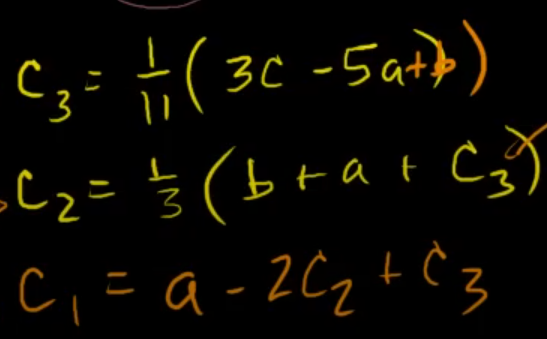 C₃ = 1/11 ( 3c - 5a + b )
C₂ = 1/3 ( b + a + C₃ )
C₁ = a - 2C₂ + C₃